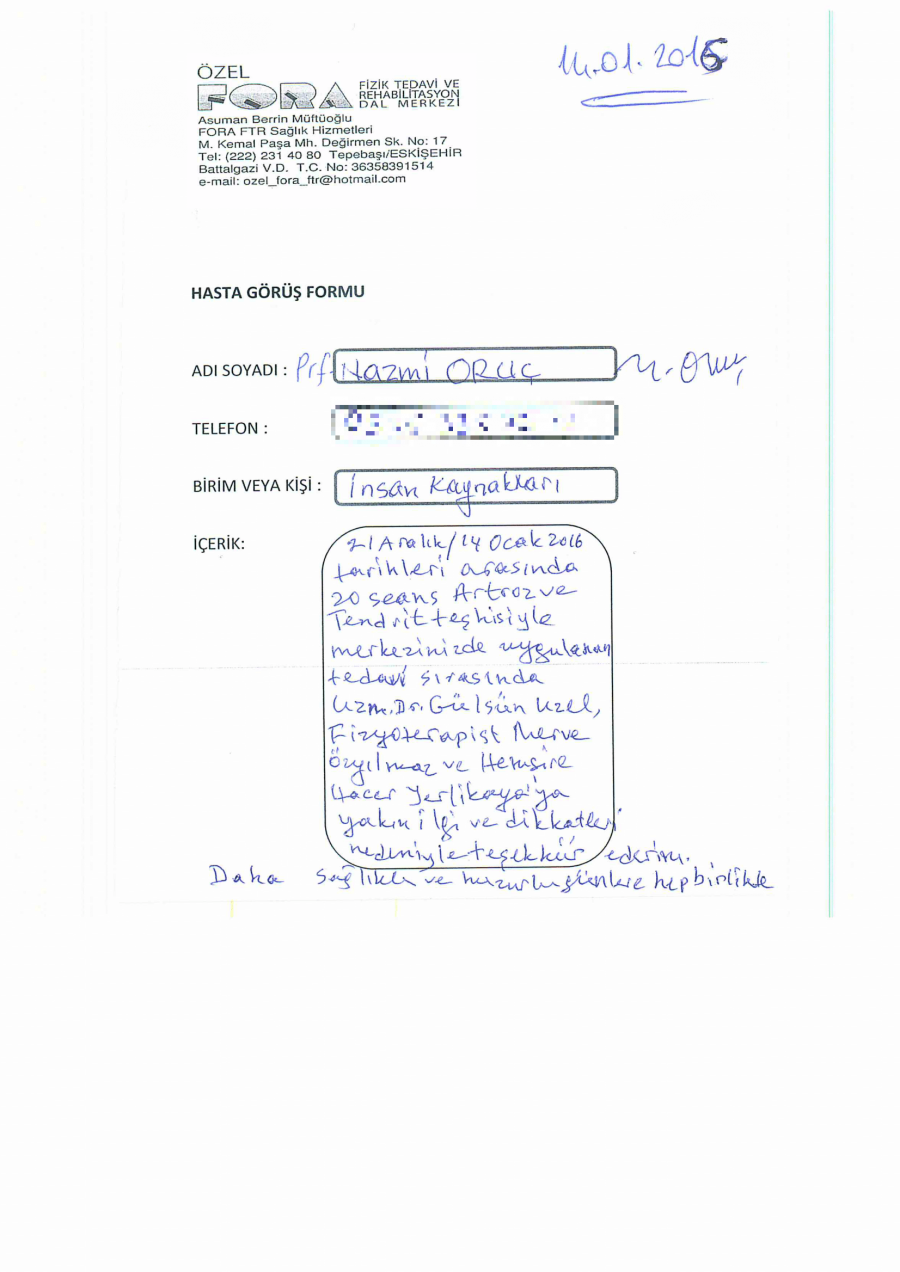 14.01.2016
ÖZEL
FORA FİZİK TEDAVİ VE
REHABİLİTASYON
DAL MERKEZİ
Asuman Berrin Müftüoğlu
FORA FTR Sağlık Hizmetleri
M. Kemal Paşa Mh. Değirmen Sk. No: 17
Tel: (222) 231 40 80 Tepebaşı/ESKİŞEHİR
Battalgazi V.D. T.C. No: 36358391514
e-mail: ozel_fora_ftr@hotmail.com
HASTA GÖRÜŞ FORMU
ADI SOYADI : Prf. Nazmi ORUÇ N. Oruç
TELEFON :
BİRİM VEYA KİŞİ : İnsan Kaynakları
İÇERİK: 21 Aralık/14 Ocak 2016
tarihleri arasında
20 seans Artroz ve
Tendrit teşhisiyle
merkezinizde uygulanan
tedavi sırasında
Uzm. Dr. Gülsün Uzel,
Fizyoterapist Merve
Özyılmaz ve Hemşire
Hacer Yerlikaya'ya
yakın ilgi ve dikkatleri
nedeniyle teşekkür ederim.
Daha sağlıklı ve huzurlu günlere hep birlikte